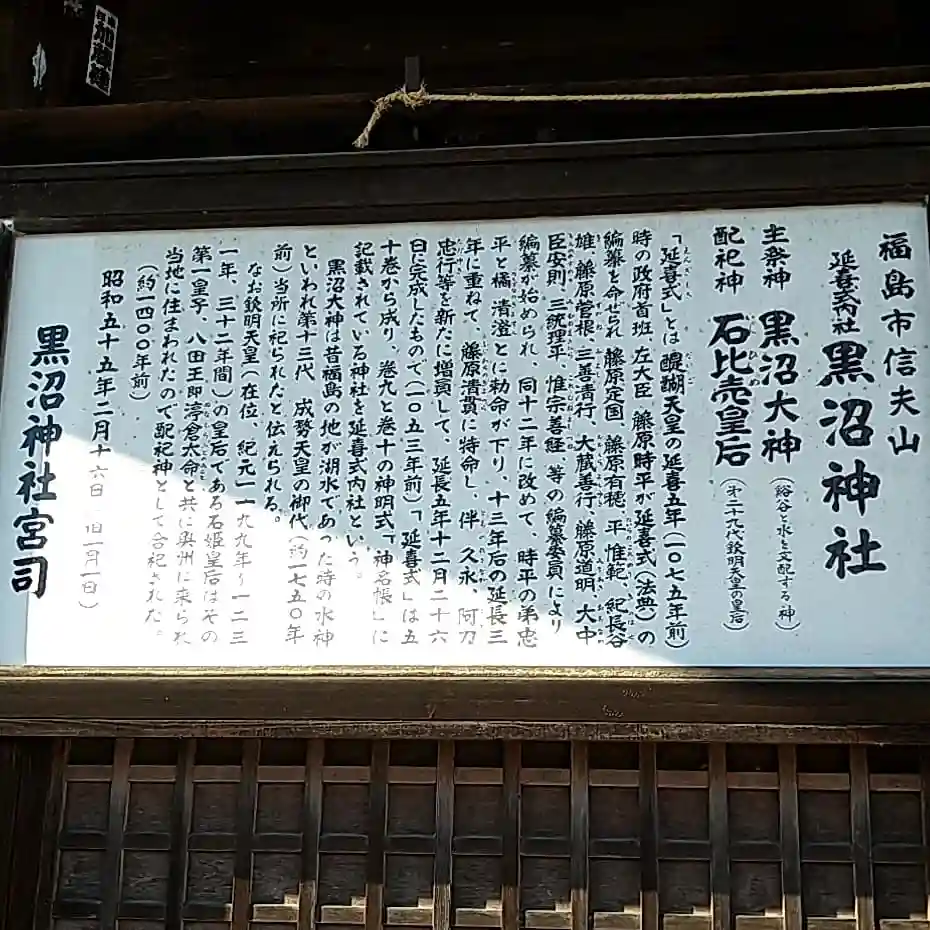 福島市信夫山
延喜式内社 黒沼神社
主祭神 黒沼大神 (谿谷と水を支配する神)
配祀神 石比売皇后 (才二十九代欽明天皇の皇后)
「延喜式」とは醍醐天皇の延喜五年(一〇七五年前)
時の政府首班、左大臣 藤原時平が延喜式(法典)の
編纂を命ぜられ 藤原定国、藤原有穂、平惟範、紀長谷
雄、藤原菅根、三善清行、大蔵善行、藤原道明、大中
臣安則、三統理平、惟宗善経、等の編纂委員により
編纂が始められ、同十二年に改めて、時平の弟忠
平と橘 清澄とに勅命が下り、十三年后の延長三
年に重ねて、藤原清貫に特命し、伴 久永、阿刀
忠行等を新たに増員して、延長五年十二月二十六
日に完成したもので(一〇五三年前)「延喜式」は五
十巻から成り、巻九と巻十の神明式「神名帳」に
記載されている神社を延喜式内社という。
黒沼大神は昔福島の地が湖水であった時の水神
といわれ第十三代 成務天皇の御代(約一七五〇年
前)当所に祀られたと伝えられる。
なお欽明天皇(在位、紀元一一九九年り一二三
一年、三十二年間)の皇后である石姫皇后はその
第一皇子、八田王即渟倉太命と共に奥州に来られ
当地に住まわれたので配祀神として合祀された。
(約一四〇〇年前)
昭和五十五年二月十六日 旧一月一日)
黒沼神社宮司